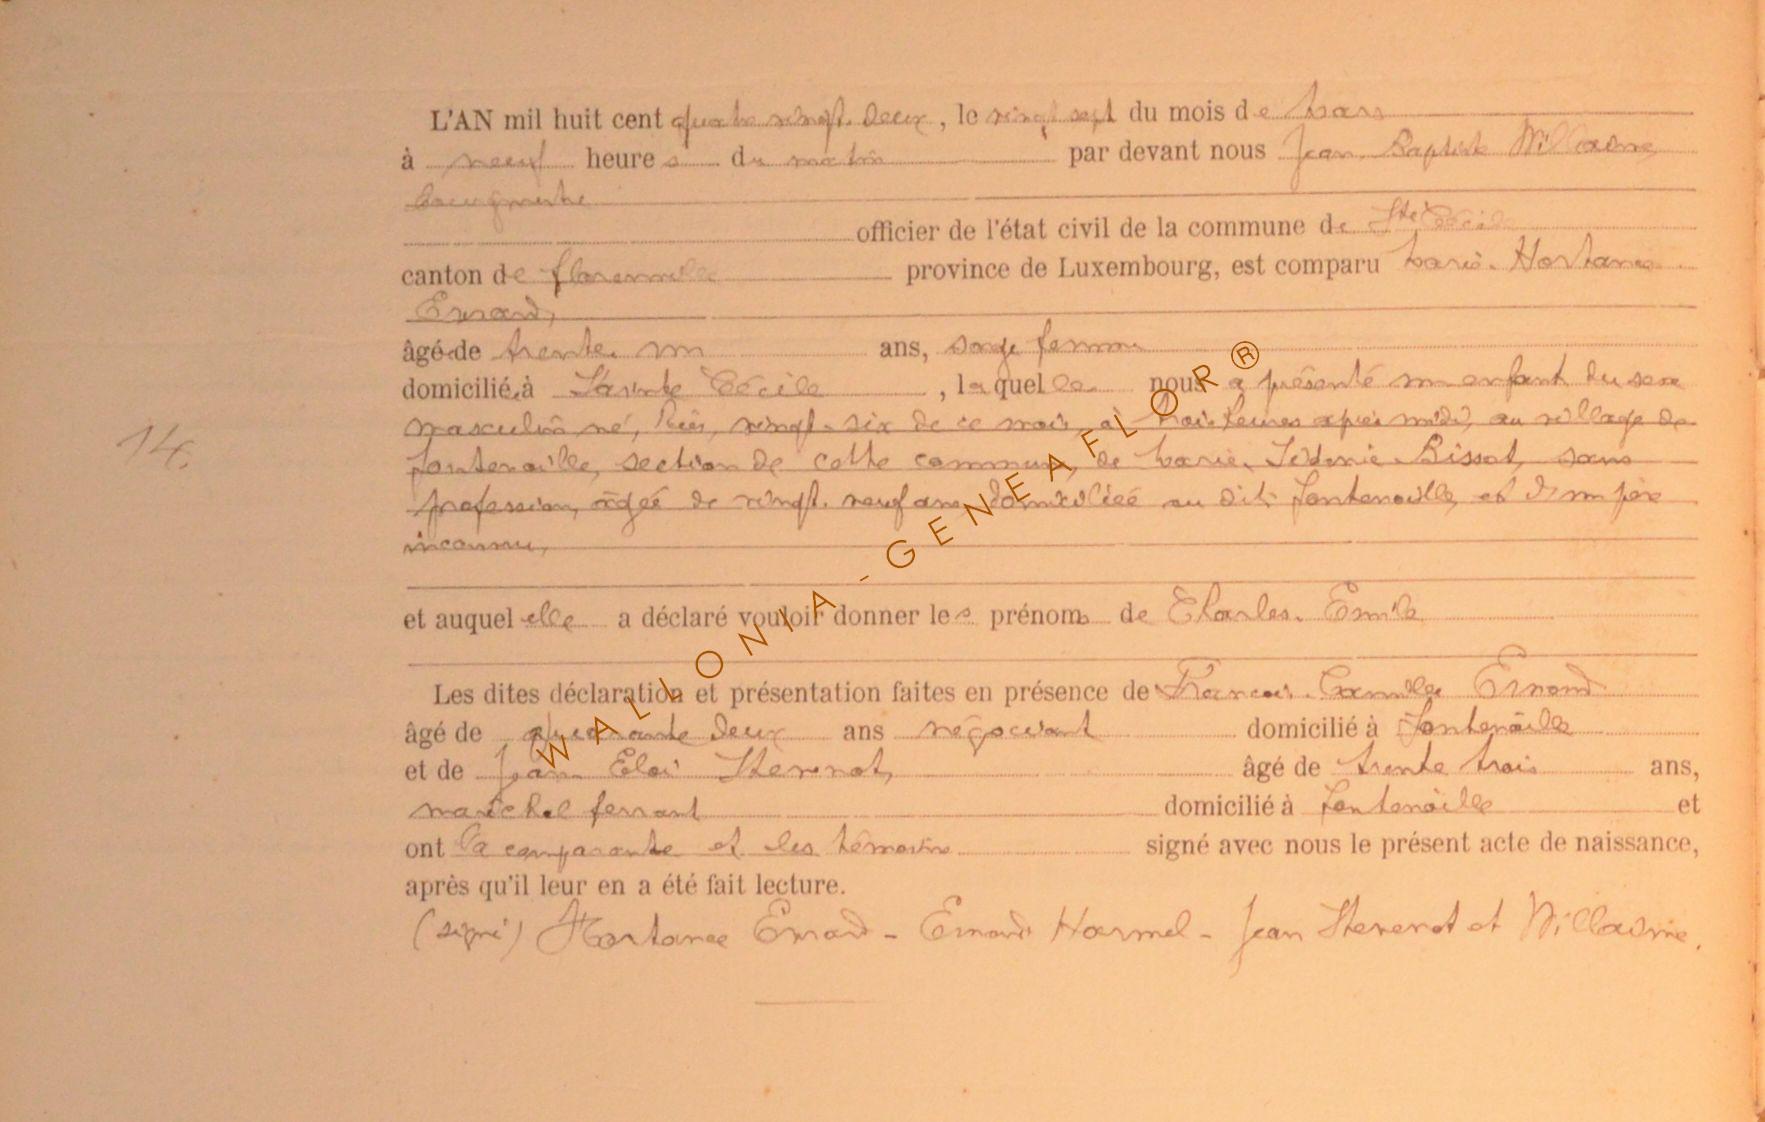 L'AN mil huit cent quatre vingt. deux, le vingt sept du mois de mars
à neuf heures du matin par devant nous Jean Baptiste Willaime
bourgmestre
officier de l'état civil de la commune de Ste Cécile
canton de florenville province de Luxembourg, est comparu Marie. Hortance
Emard,
âgé de trente un ans, sage femme
domicilié à Sainte Cécile, laquelle nous a présenté un enfant du sexe
masculin né, hier, vingt-six de ce mois, à trois heures après midi, au village de
14.
fontenoille, section de cette commune, de Marie. Sidonie Bissot, sans
profession, âgée de vingt. neuf ans, domiciliée au dit fontenoille, et d'un père
inconnu,
et auquel elle a déclaré vouloir donner les prénoms de Charles. Emile
Les dites déclaration et présentation faites en présence de François. Camille Emond
âgé de quarante deux ans négociant domicilié à fontenoille
et de Jean Eloi Stevenot, âgé de trente trois ans,
maréchal ferrant domicilié à fontenoille et
ont la comparante et les témoins signé avec nous le présent acte de naissance,
après qu'il leur en a été fait lecture.
(signé) Hortance Emard - Emond - Jean Stevenot et Willaime.
WALLONIA-GENEAFLOR®